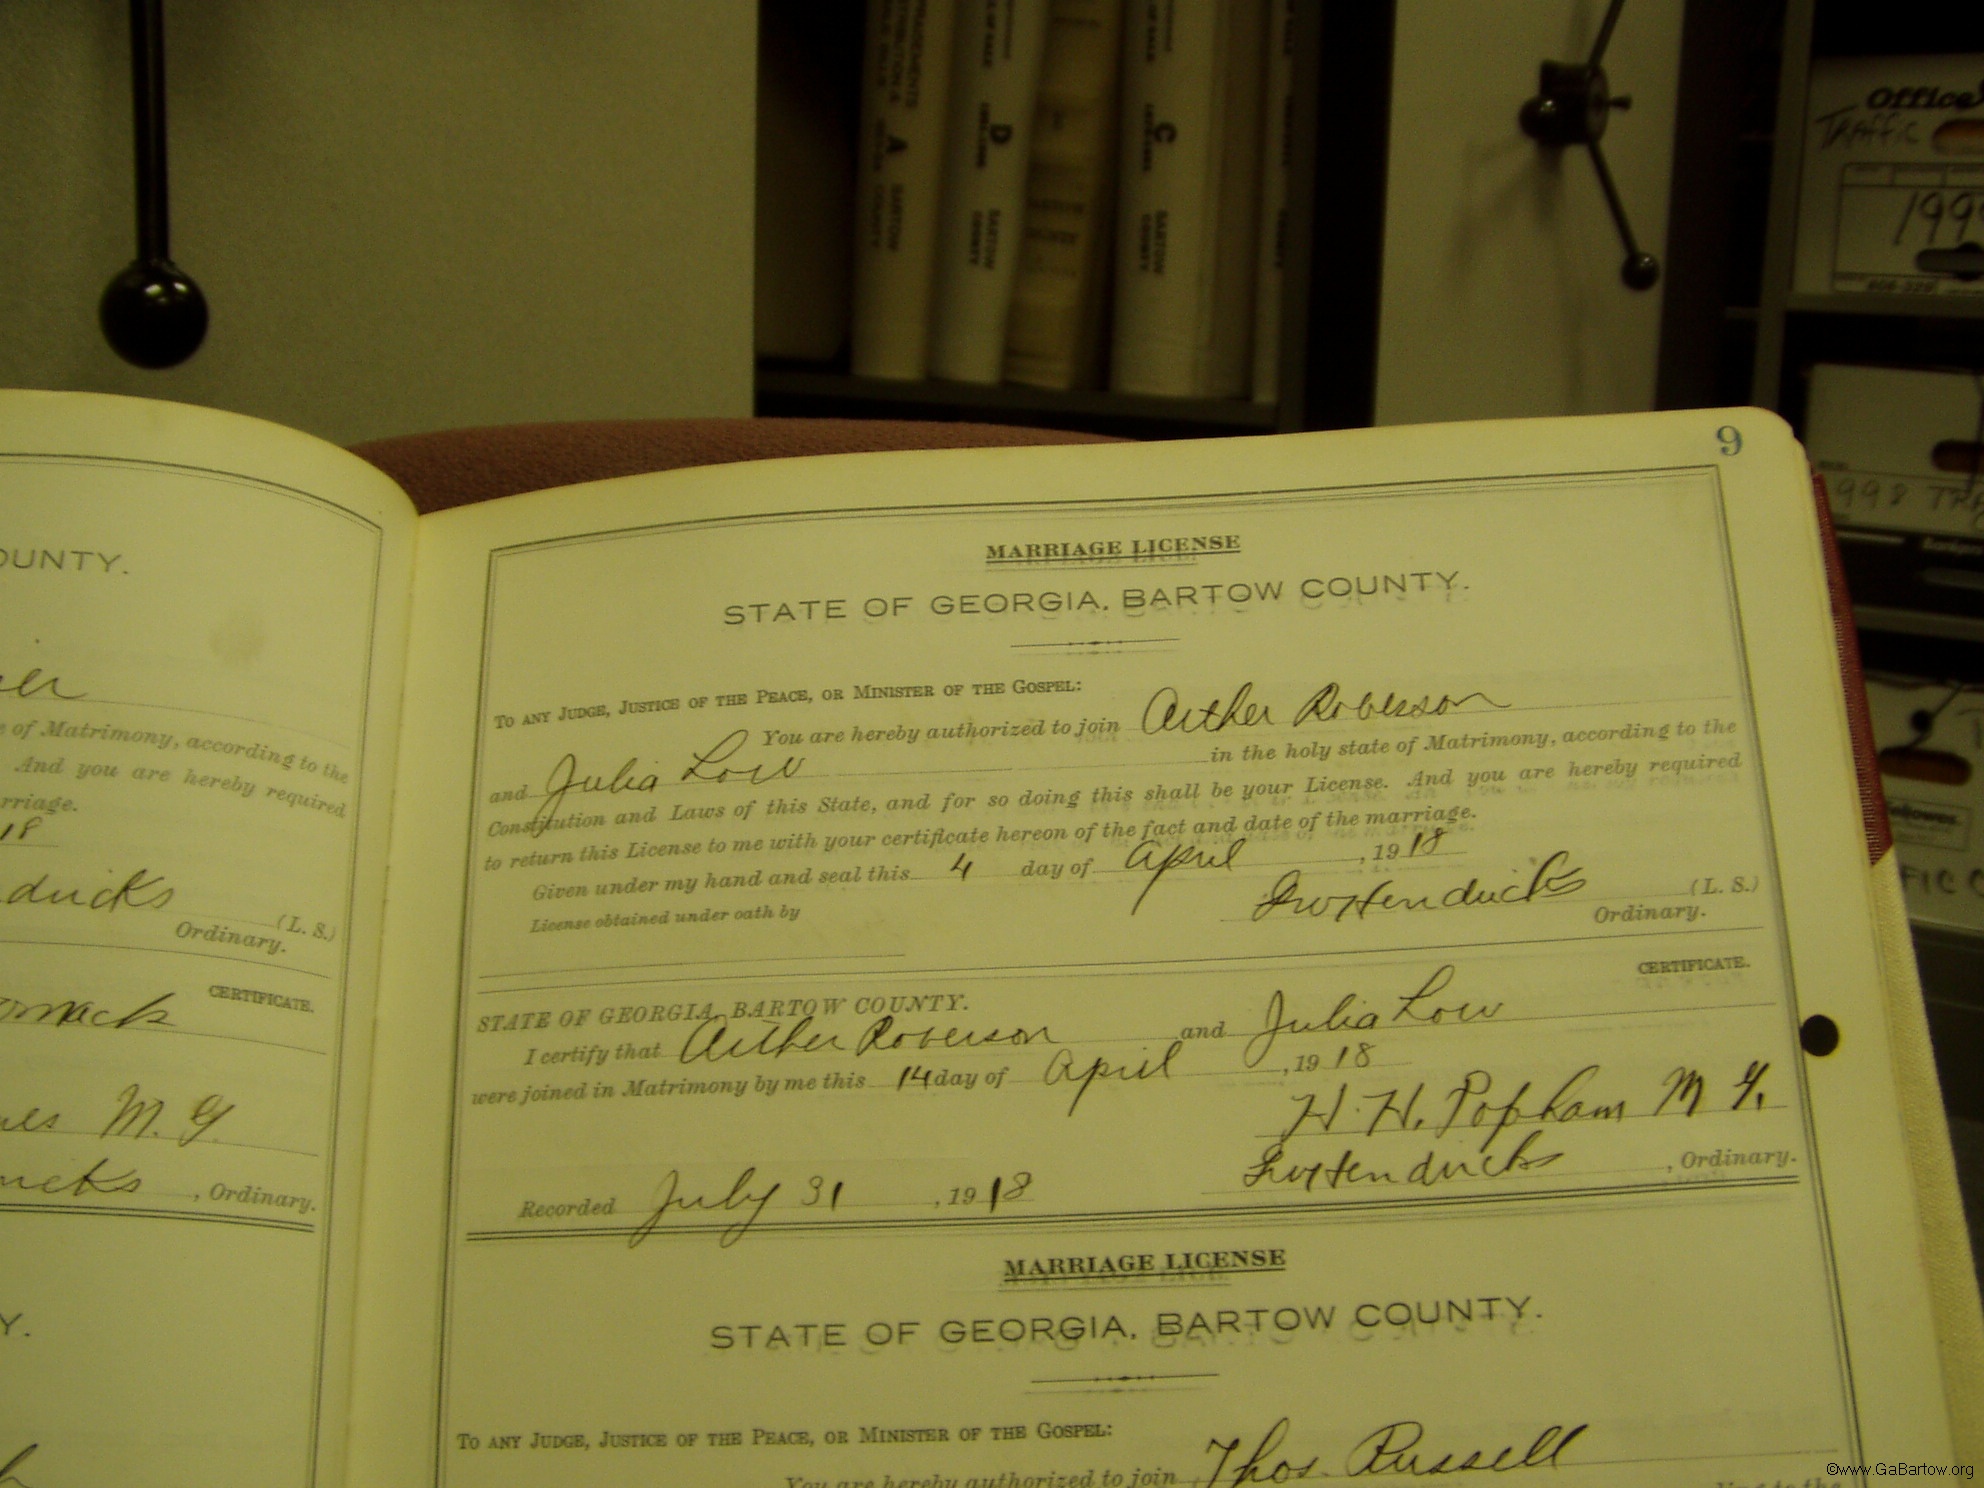 APPRAISEMENTS
A
BARTOW
COUNTY
D
BARTOW
COUNTY
C
BARTOW
COUNTY
Office
TRAFFIC
199
998 TRA
Fellowes
FIC
9
OUNTY.
e of Matrimony, according to the
And you are hereby required
rriage.
18
dricks (L. S.)
Ordinary.
CERTIFICATE.
M. G.
, Ordinary.
Y.
MARRIAGE LICENSE
STATE OF GEORGIA, BARTOW COUNTY.
TO ANY JUDGE, JUSTICE OF THE PEACE, OR MINISTER OF THE GOSPEL:
You are hereby authorized to join Arther Roberson
and Julia Low in the holy state of Matrimony, according to the
Constitution and Laws of this State, and for so doing this shall be your License. And you are hereby required
to return this License to me with your certificate hereon of the fact and date of the marriage.
Given under my hand and seal this 4 day of April, 1918
GwHendricks (L. S.)
License obtained under oath by Ordinary.
CERTIFICATE.
STATE OF GEORGIA, BARTOW COUNTY.
I certify that Arther Roverson and Julia Low
were joined in Matrimony by me this 14 day of April, 1918
H. H. Popham M G.
Recorded July 31, 1918 GwHendricks, Ordinary.
MARRIAGE LICENSE
STATE OF GEORGIA, BARTOW COUNTY.
TO ANY JUDGE, JUSTICE OF THE PEACE, OR MINISTER OF THE GOSPEL:
You are hereby authorized to join Thos. Russell
©www.GaBartow.org